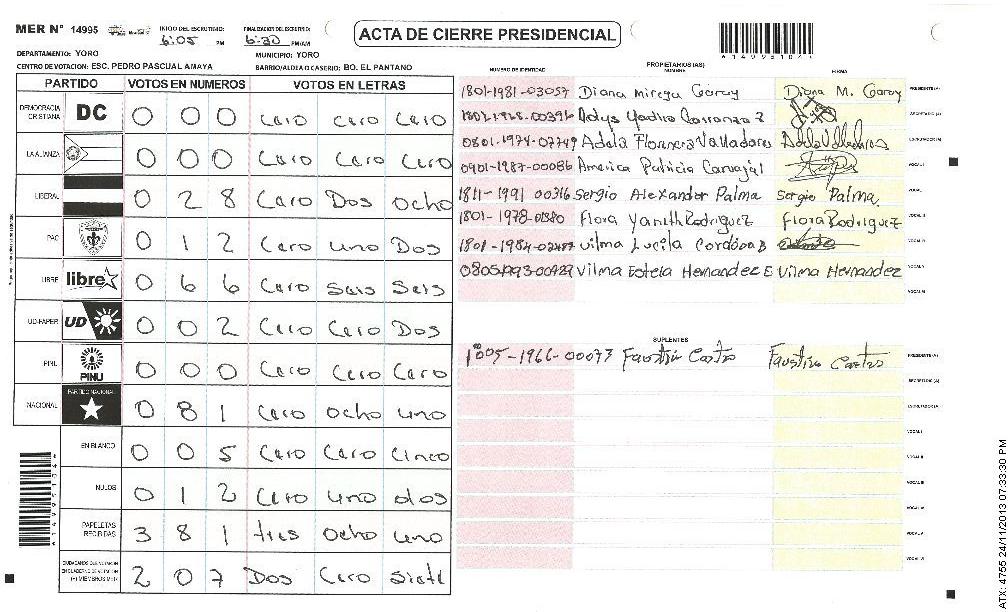 MER Nº 14995 INICIO DEL ESCRUTINIO: 6:05 PM FINALIZACION DEL ESCRUTINIO: 6:30 PM/AM
ACTA DE CIERRE PRESIDENCIAL
DEPARTAMENTO: YORO MUNICIPIO: YORO
CENTRO DE VOTACION: ESC. PEDRO PASCUAL AMAYA BARRIO/ALDEA O CASERIO: BO. EL PANTANO
PARTIDO VOTOS EN NUMEROS VOTOS EN LETRAS
DEMOCRACIA CRISTIANA DC 0 0 0 Cero cero Cero
LA ALIANZA 0 0 0 Cero Cero Cero
LIBERAL 0 2 8 Cero Dos ocho
PAC 0 1 2 Cero uno Dos
LIBRE libre 0 6 6 Cero Seis Seis
UD-FAPER UD 0 0 2 Cero Cero Dos
PINU PINU 0 0 0 Cero Cero Cero
NACIONAL PARTIDO NACIONAL 0 8 1 Cero ocho uno
EN BLANCO 0 0 5 Cero Cero Cinco
NULOS 0 1 2 Cero uno dos
PAPELETAS RECIBIDAS 3 8 1 tres Ocho uno
CIUDADANOS QUE VOTARON EN CUADERNO DE VOTACION (+) MIEMBROS MER 2 0 7 Dos Cero Siete
PROPIETARIOS (AS)
NUMERO DE IDENTIDAD NOMBRE FIRMA
1801-1981-03057 Diana Mireya Garay Diana M. Garay PRESIDENTE (A)
SECRETARIO (A)
0801-1974-07749 Adela Florencia Valladares ESCRUTADOR (A)
0901-1987-00086 America Patricia Carvajal VOCAL I
1811-1991 00316 Sergio Alexander Palma Sergio Palma. VOCAL II
Flora Yanith Rodriguez Flora Rodriguez VOCAL III
Vilma Lucila Cordova B VOCAL IV
Vilma Estela Hernandez E Vilma Hernandez VOCAL V
VOCAL VI
SUPLENTES
1005-1966-00073 Faustino Castro Faustino Castro PRESIDENTE (A)
SECRETARIO (A)
ESCRUTADOR (A)
VOCAL I
VOCAL II
VOCAL III
VOCAL IV
VOCAL V
VOCAL VI
ATX: 4755 24/11/2013 07:33:30 PM